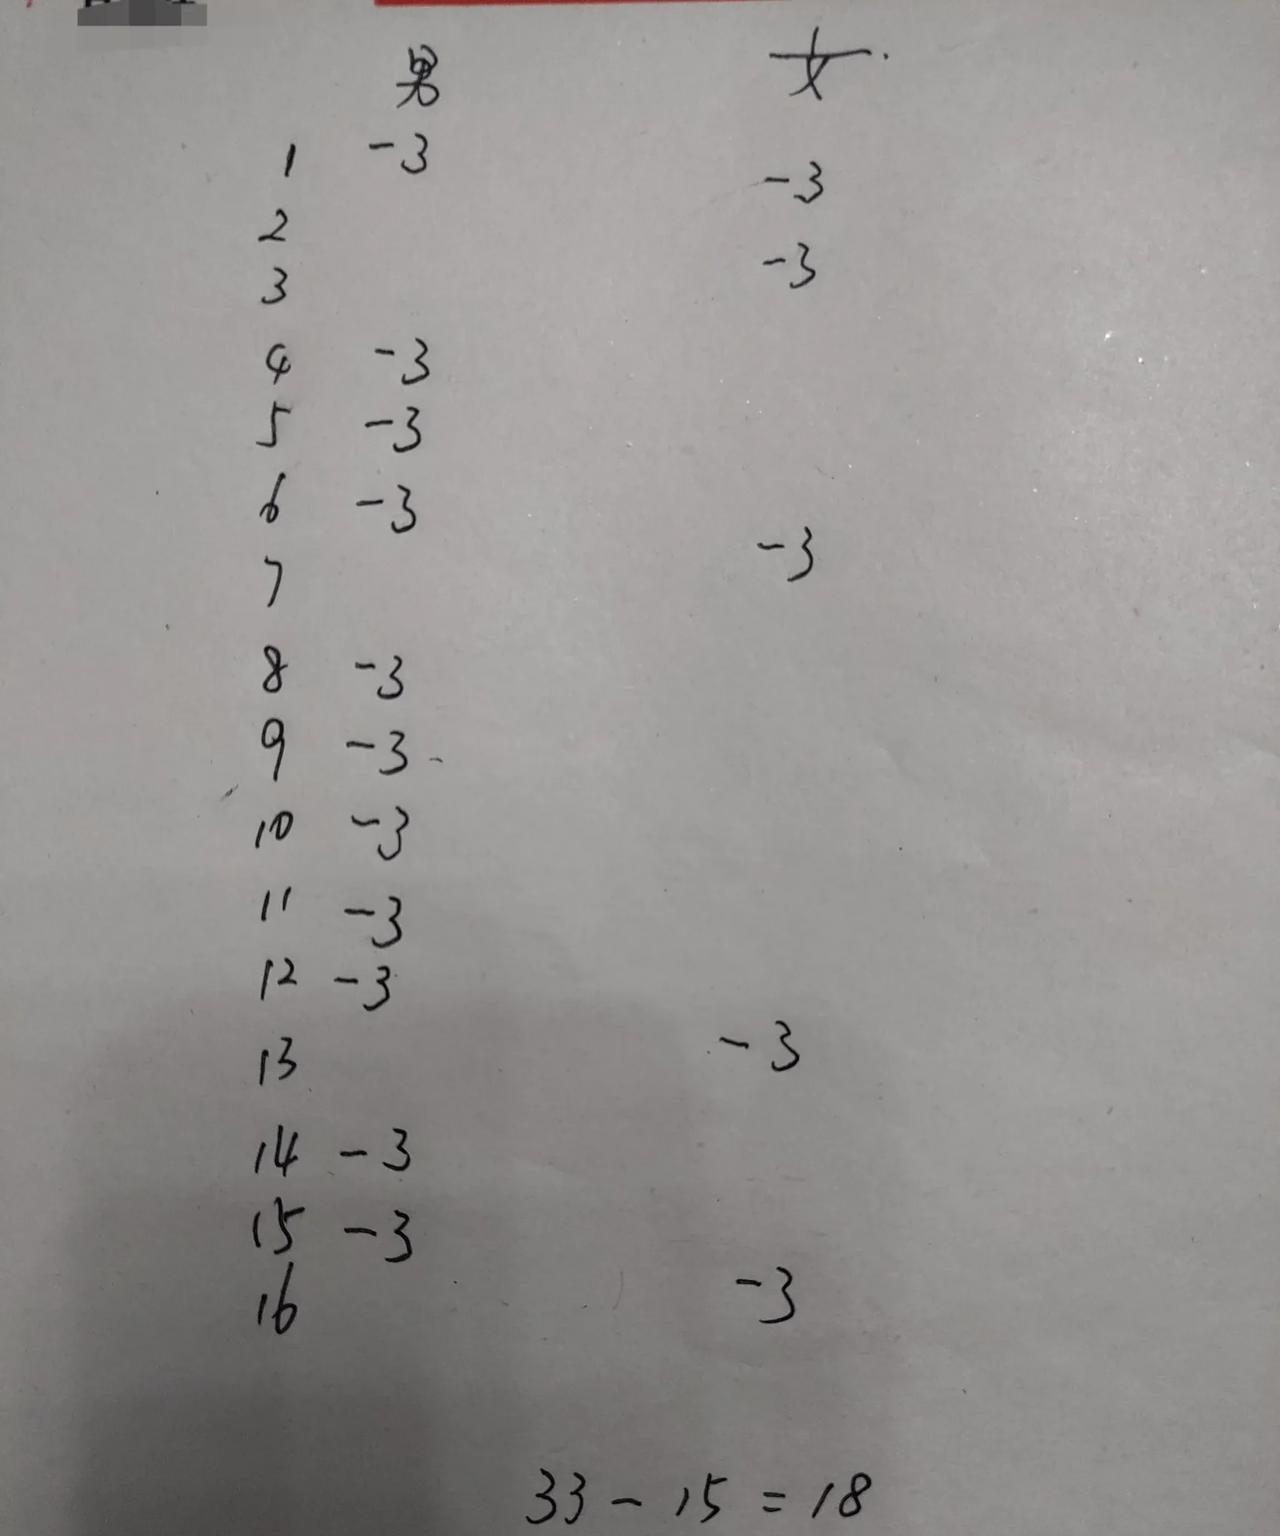 男 女
1 -3
-3
2
-3
3
4 -3
5 -3
6 -3
-3
7
8 -3
9 -3
10 -3
11 -3
12 -3
-3
13
14 -3
15 -3
-3
16
33-15=18